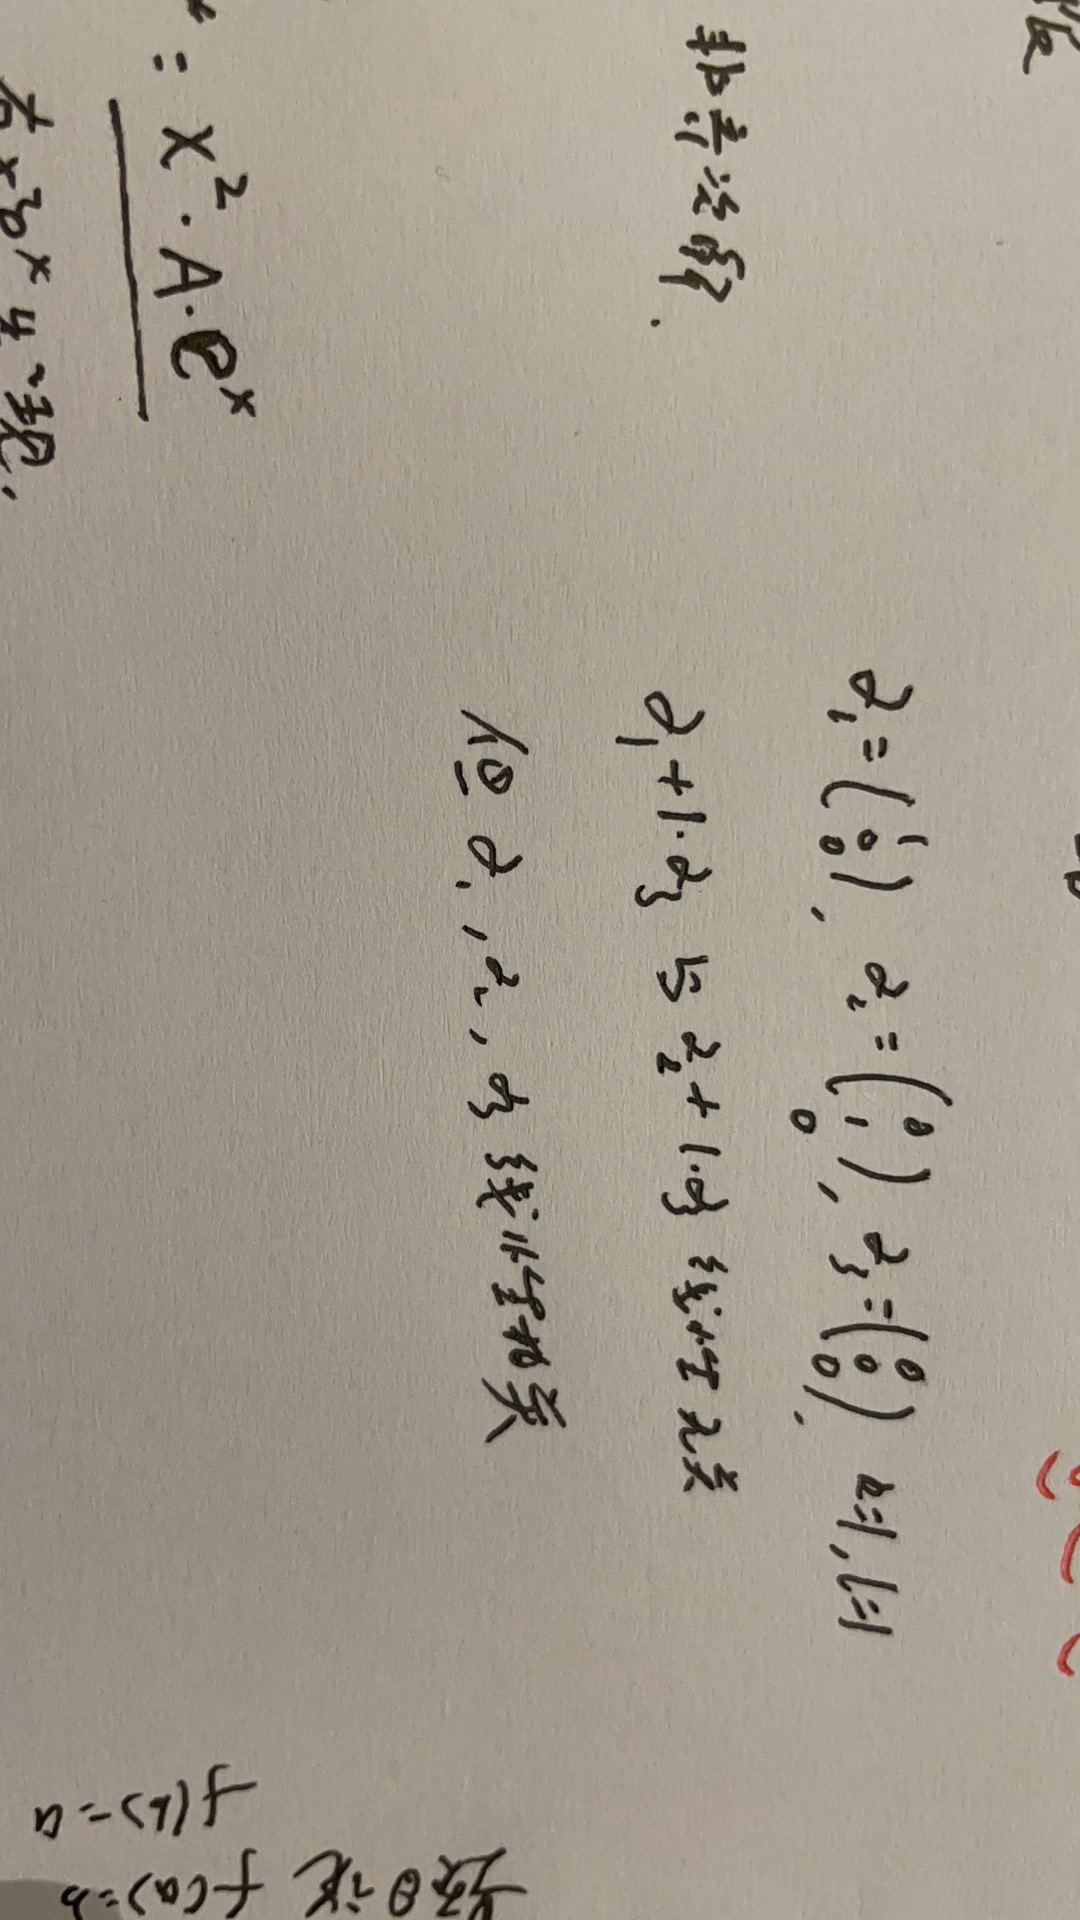 非齐次解.
α₁=(1 0 0), α₂=(0 1 0), α₃=(0 0 0), k=1, l=1
α₁+1·α₃ 与 α₂+1·α₃ 线性无关
但 α₁, α₂, α₃ 线性相关
: x²·A·eˣ
题目说 f(a)=b
f(b)=a